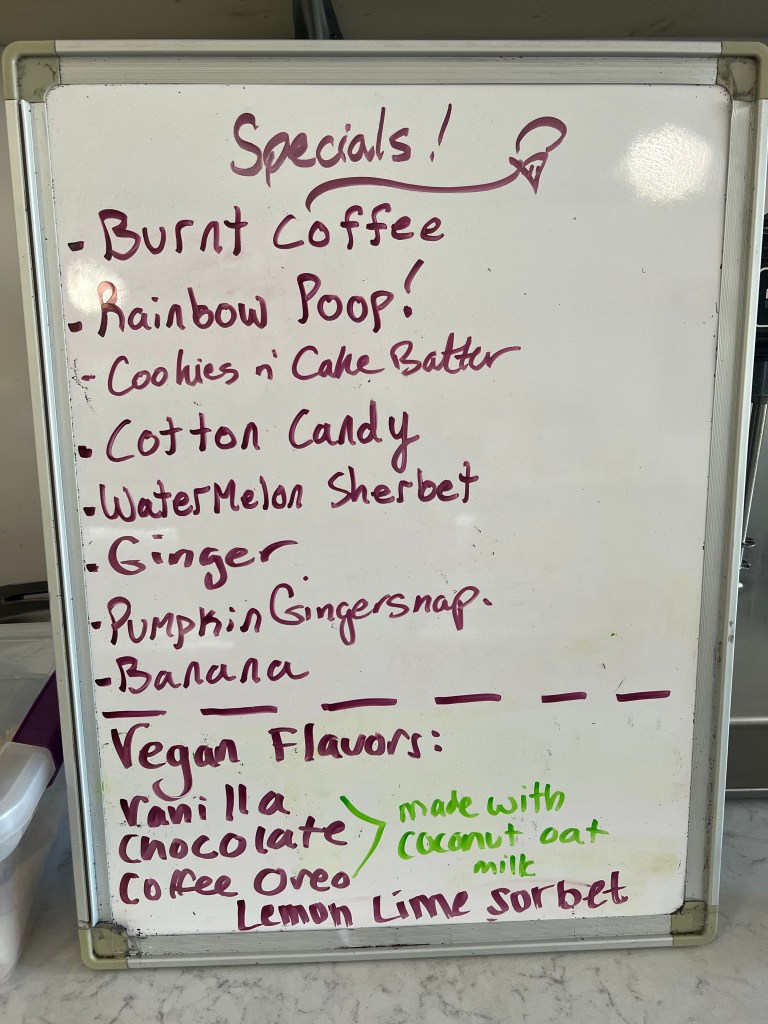 Specials!
- Burnt Coffee
- Rainbow Poop!
- Cookies n' Cake Batter
- Cotton Candy
- WaterMelon Sherbet
- Ginger
- Pumpkin Gingersnap.
- Banana
Vegan Flavors:
Vanilla
Chocolate
Coffee Oreo
made with
coconut oat
milk
Lemon Lime Sorbet